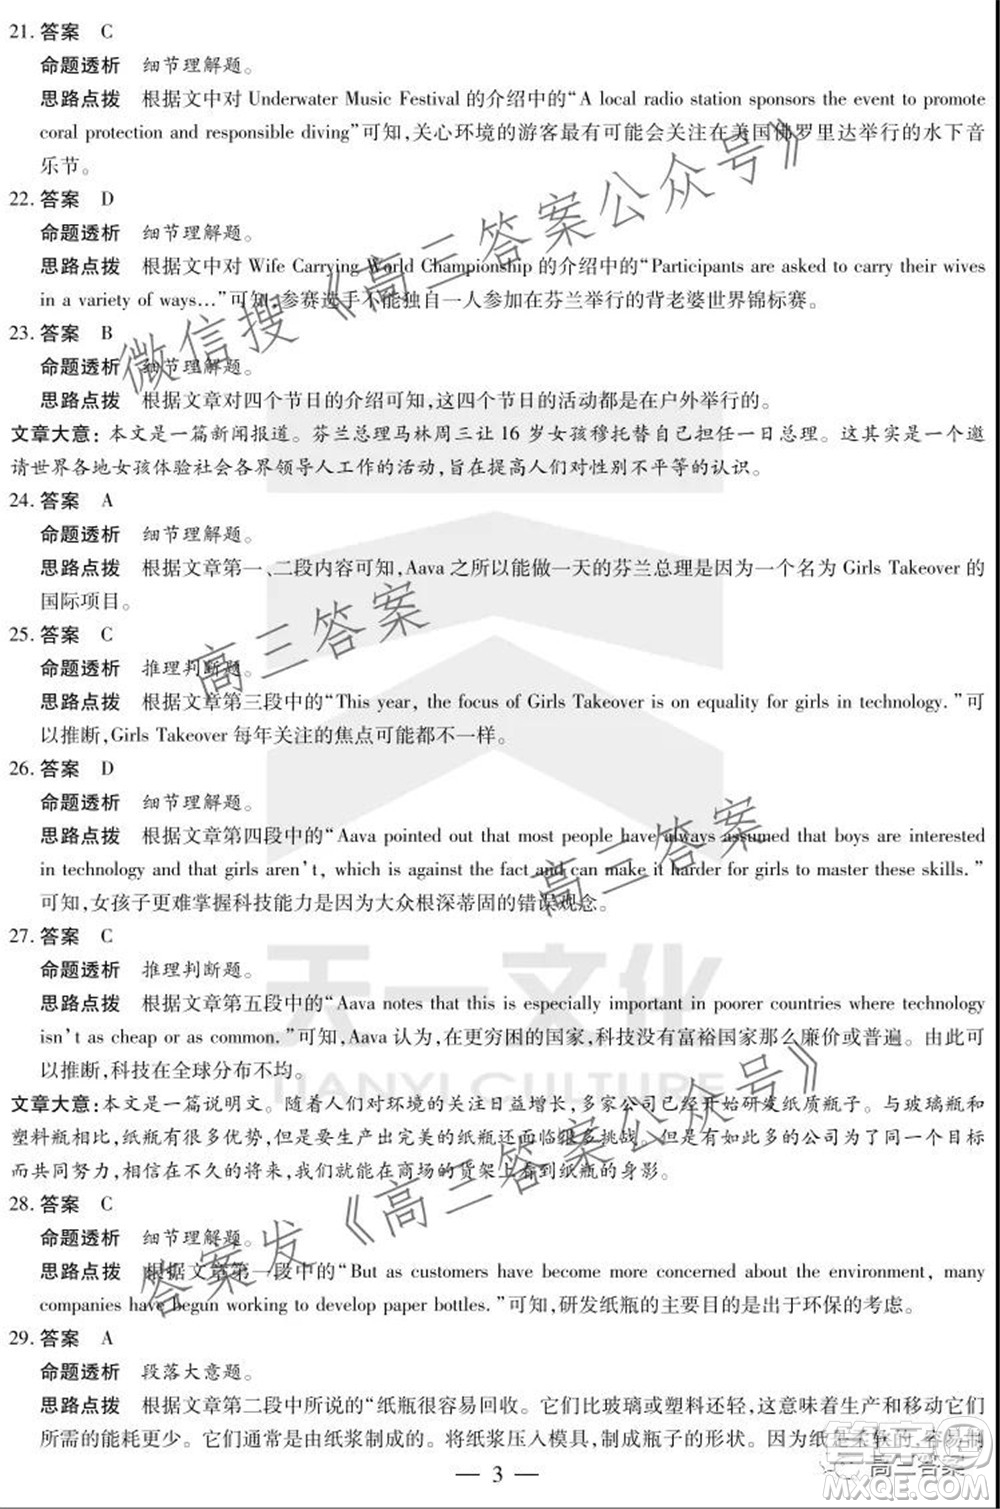 21. 答案 C
命题透析 细节理解题。
思路点拨 根据文中对 Underwater Music Festival 的介绍中的“A local radio station sponsors the event to promote
coral protection and responsible diving”可知,关心环境的游客最有可能会关注在美国佛罗里达举行的水下音
乐节。
22. 答案 D
命题透析 细节理解题。
思路点拨 根据文中对 Wife Carrying World Championship 的介绍中的“Participants are asked to carry their wives
in a variety of ways…”可知,参赛选手不能独自一人参加在芬兰举行的背老婆世界锦标赛。
23. 答案 B
命题透析 细节理解题。
思路点拨 根据文章对四个节日的介绍可知,这四个节日的活动都是在户外举行的。
文章大意:本文是一篇新闻报道。芬兰总理马林周三让 16 岁女孩穆托替自己担任一日总理。这其实是一个邀
请世界各地女孩体验社会各界领导人工作的活动,旨在提高人们对性别不平等的认识。
24. 答案 A
命题透析 细节理解题。
思路点拨 根据文章第一、二段内容可知,Aava 之所以能做一天的芬兰总理是因为一个名为 Girls Takeover 的
国际项目。
25. 答案 C
命题透析 推理判断题。
思路点拨 根据文章第三段中的“This year, the focus of Girls Takeover is on equality for girls in technology.”可
以推断,Girls Takeover 每年关注的焦点可能都不一样。
26. 答案 D
命题透析 细节理解题。
思路点拨 根据文章第四段中的“Aava pointed out that most people have always assumed that boys are interested
in technology and that girls aren't, which is against the fact and can make it harder for girls to master these skills.”
可知,女孩子更难掌握科技能力是因为大众根深蒂固的错误观念。
27. 答案 C
命题透析 推理判断题。
思路点拨 根据文章第五段中的“Aava notes that this is especially important in poorer countries where technology
isn't as cheap or as common.”可知,Aava 认为,在更穷困的国家,科技没有富裕国家那么廉价或普遍。由此可
以推断,科技在全球分布不均。
文章大意:本文是一篇说明文。随着人们对环境的关注日益增长,多家公司已经开始研发纸质瓶子。与玻璃瓶和
塑料瓶相比,纸瓶有很多优势,但是要生产出完美的纸瓶还面临很多挑战。但是有如此多的公司为了一个目标
而共同努力,相信在不久的将来,我们就能在商场的货架上看到纸瓶的身影。
28. 答案 C
命题透析 细节理解题。
思路点拨 根据文章第一段中的“But as customers have become more concerned about the environment, many
companies have begun working to develop paper bottles.”可知,研发纸瓶的主要目的是出于环保的考虑。
29. 答案 A
命题透析 段落大意题。
思路点拨 根据文章第二段中所说的“纸瓶很容易回收。它们比玻璃或塑料还轻,这意味着生产和移动它们
所需的能耗更少。它们通常是由纸浆制成的。将纸浆压入模具,制成瓶子的形状。因为纸是柔软的,容易
— 3 —
微信搜《高三答案公众号》
高三答案
高三答案
答案发《高三答案公众号》
天一文化
TIANYI CULTURE
高三答案